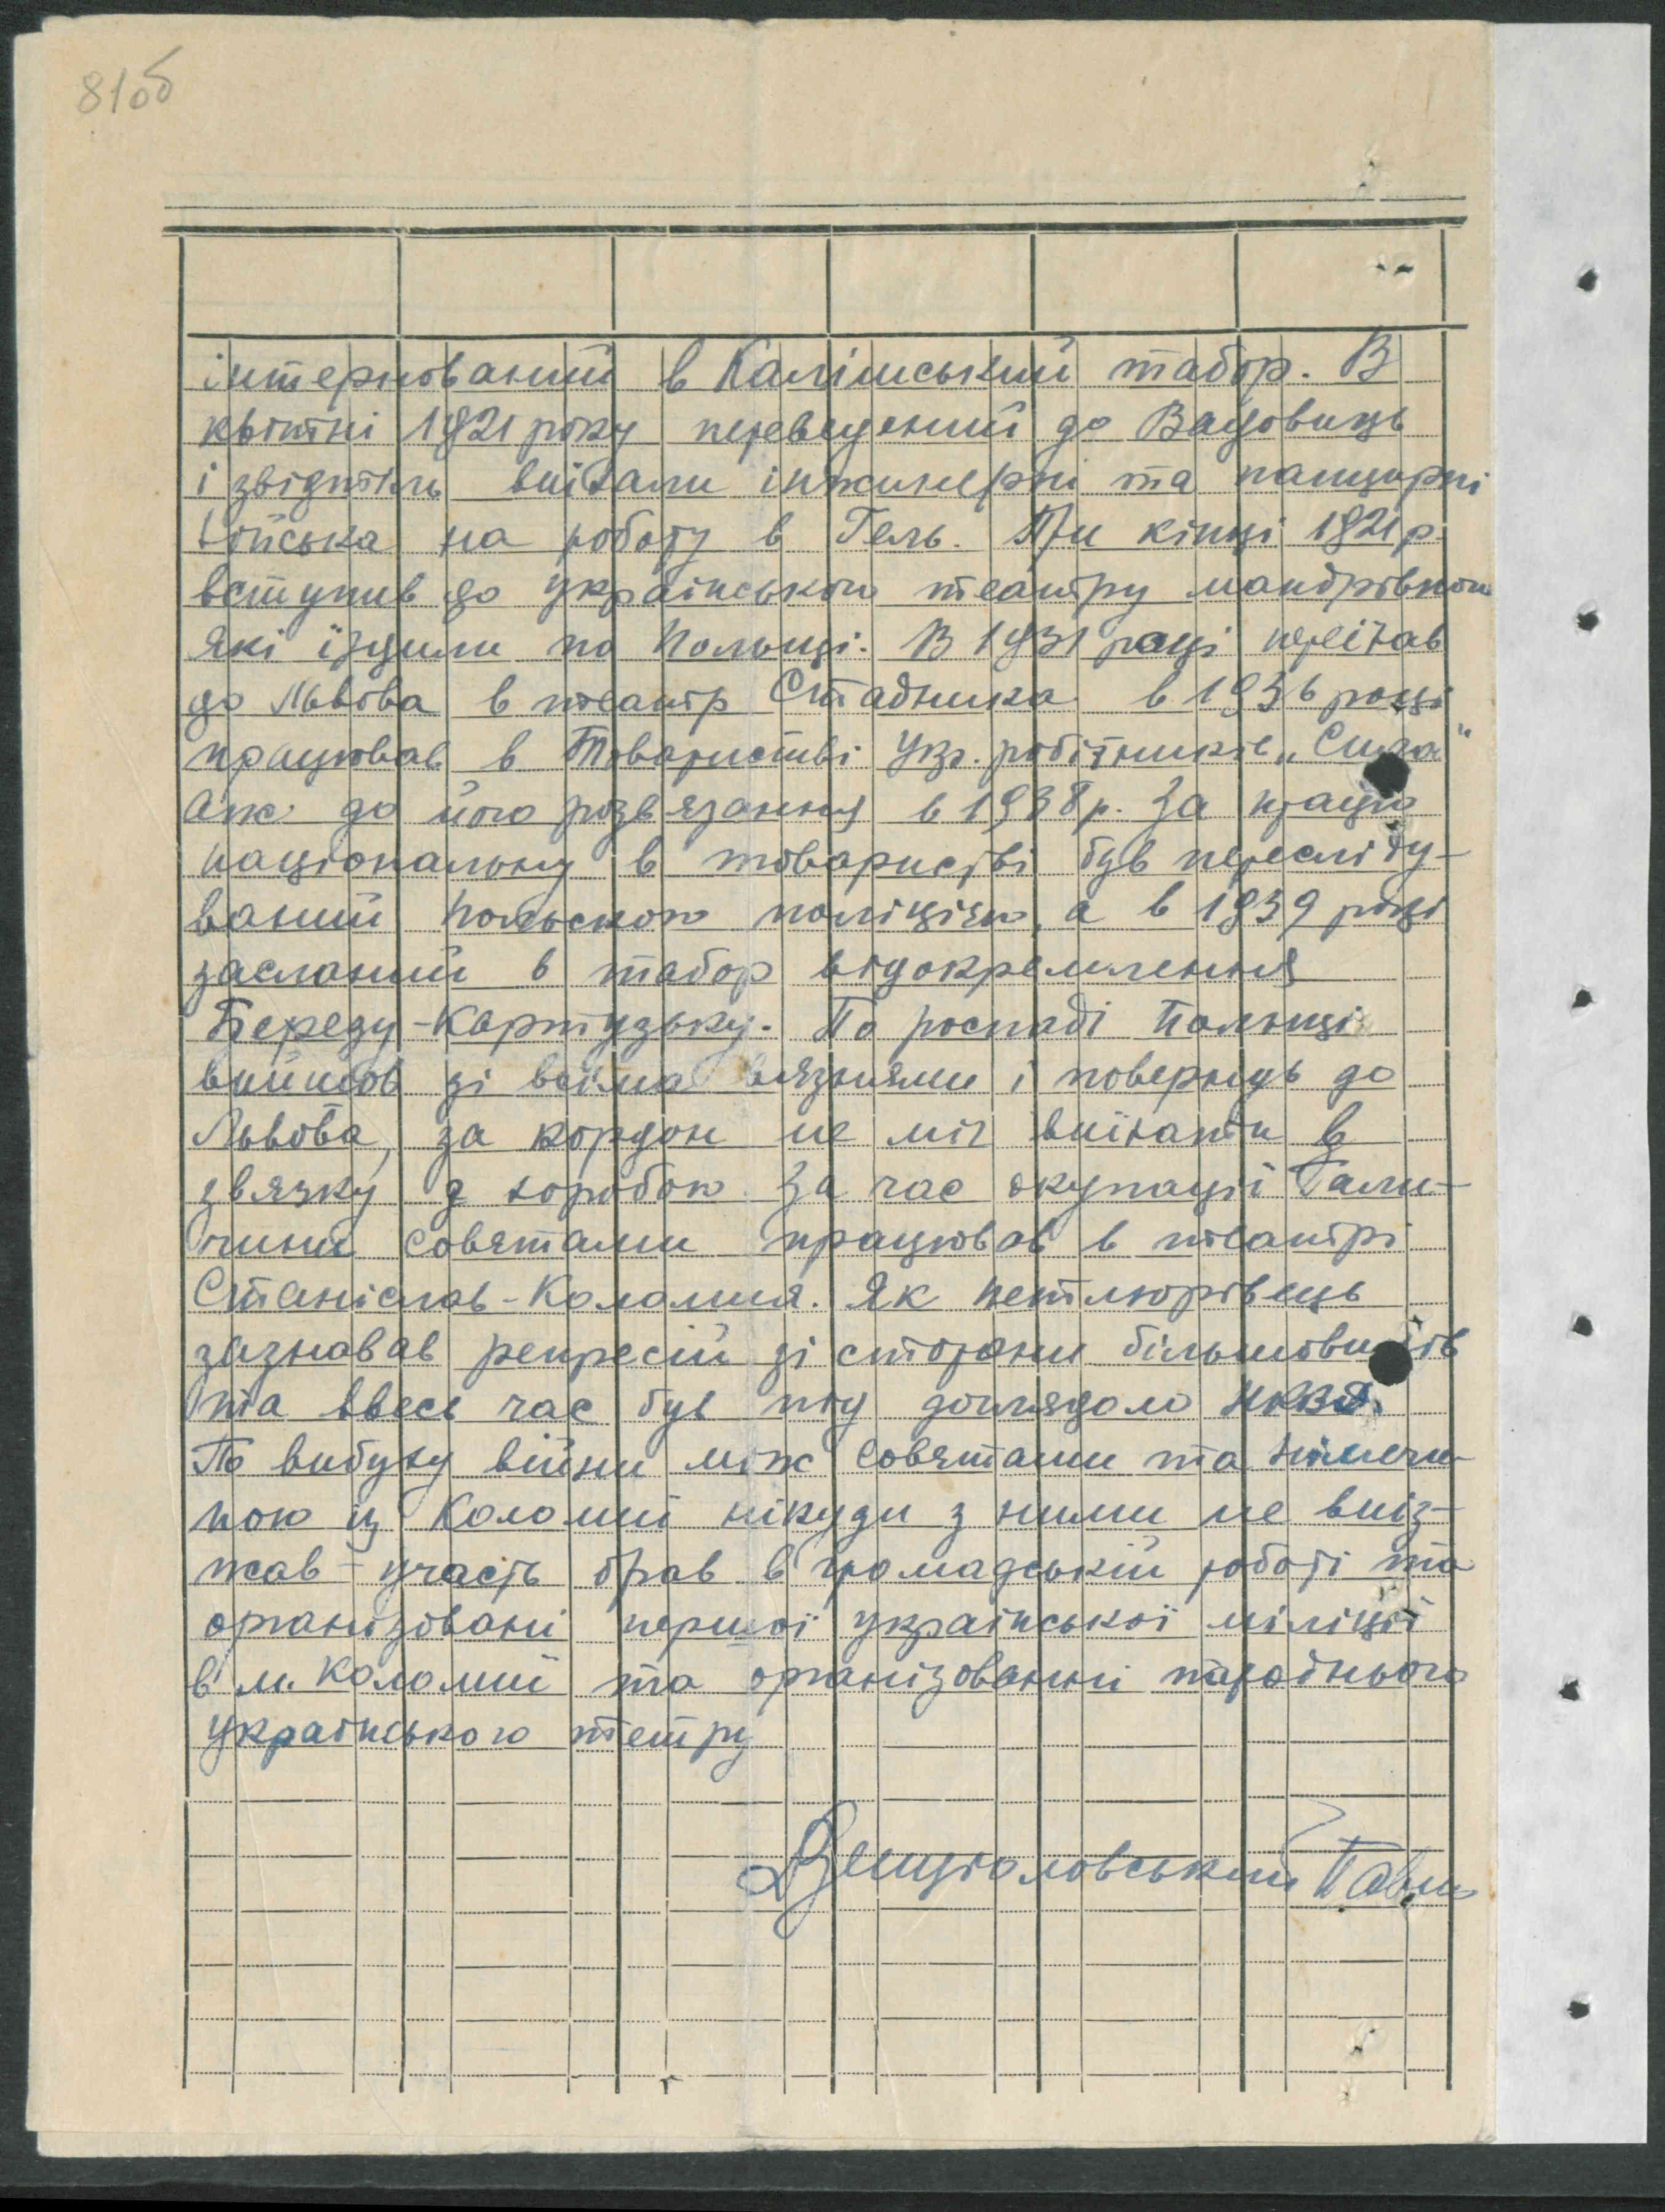 81об
інтернований в Калішський табор. В
квітні 1921 року переведений до Вадовиць
і звідтіль виїхали інжинерні та панцирні
війська на роботу в Гель. При кінці 1921 р.
вступив до українського театру мандрівного
які їздили по Польщі. В 1931 році переїхав
до Львова в театр Стадника в 1936 році
працював в Товаристві Укр. робітників „Сила"
аж до його розвязання в 1938 р. За працю
національну в товаристві був пересліду-
ваний польською поліцією, а в 1939 році
засланий в табор відокремлення
Березу-Картузьку. По роспаді Польщі
вийшов зі всіма вязнями і повернув до
Львова, за кордон не міг виїхати в
звязку з хоробою. За час окупації Гали-
чини совятами працював в театрі
Станіслав-Коломия. Як петлюрівець
зазнавав репресій зі сторони більшовиків
та ввесь час був під доглядом НКВД.
По вибуху війни між совятами та Німеччи-
ною із Коломиї нікуди з ними не виїз-
жав - участь брав в громадській роботі та
організовані першої української міліції
в м. Коломиї та організованні народнього
українського тетру
Дзенціоловський Павло